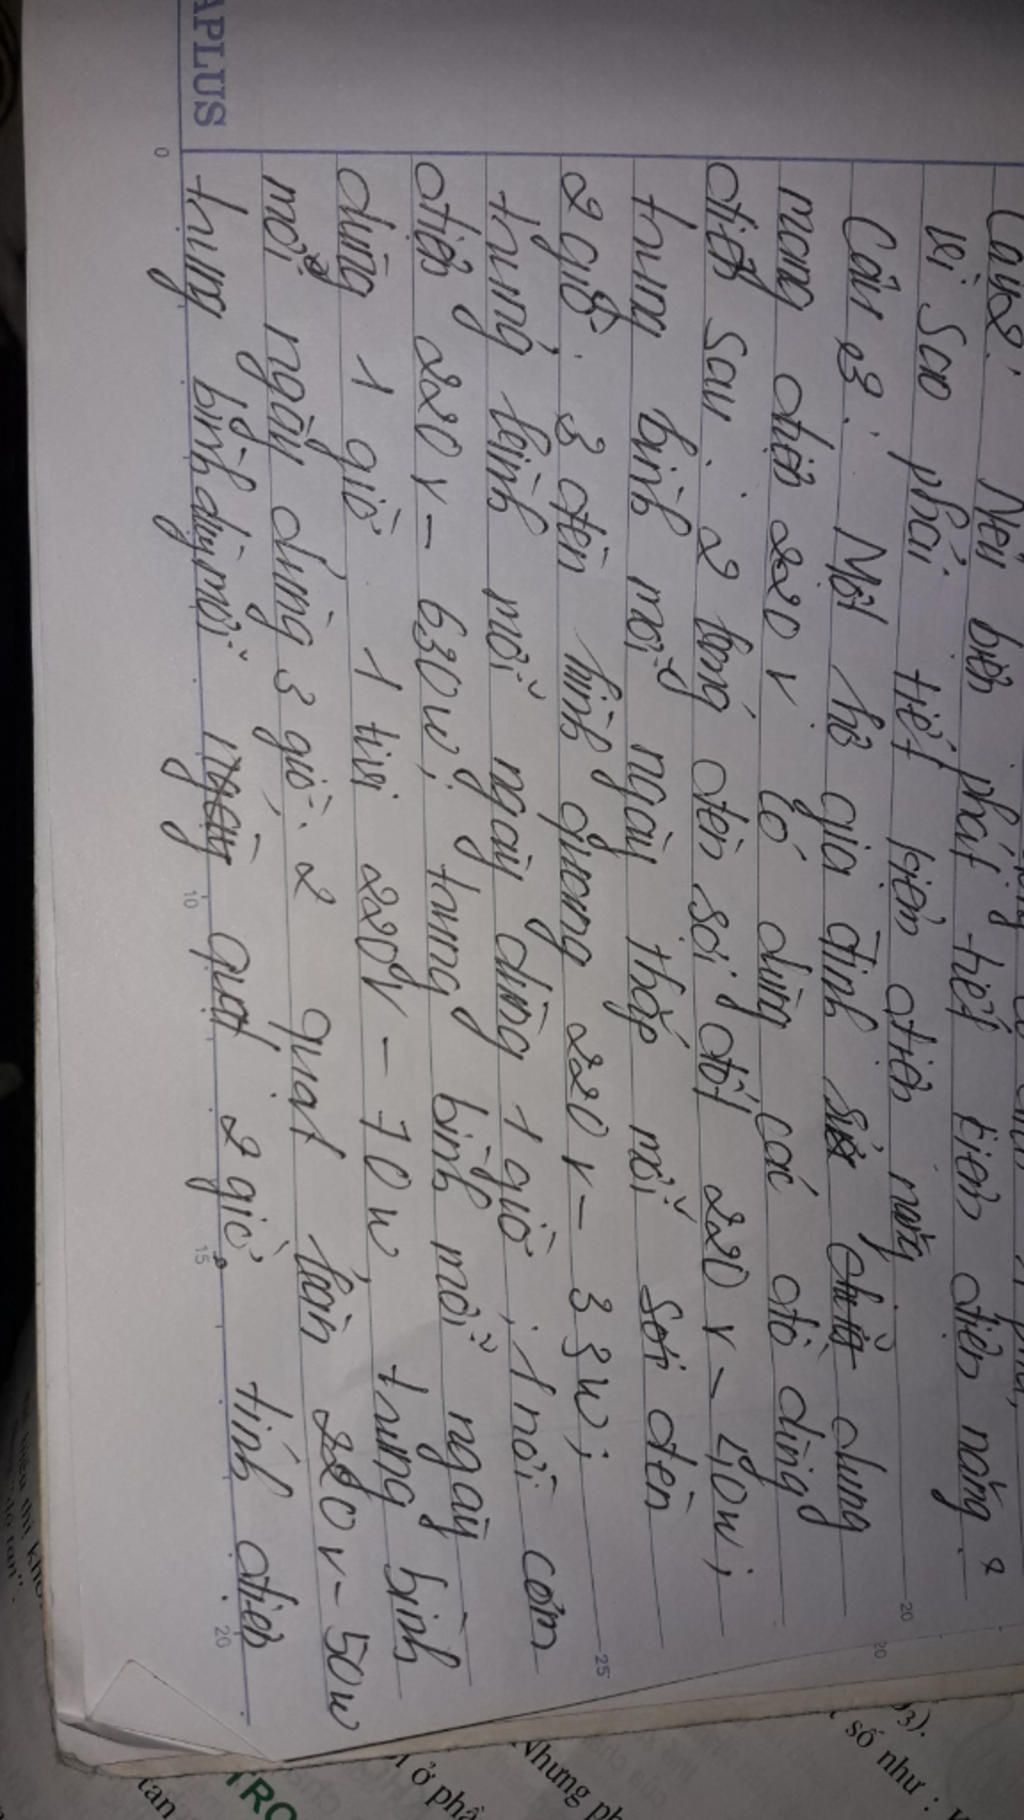 Câu 2: Nêu biện pháp tiết kiệm điện năng ?
Vì Sao phải tiết kiệm điện năng
Câu 3: Một hộ gia đình sử dung
mạng điện 220 V có dùng các đồ dùng
điện sau: 2 bóng đèn sợi đốt 220 V - 40W;
trung bình mỗi ngày thắp mỗi sợi đèn
2 giờ. 3 đèn hình quang 220 V - 33W;
trung bình mỗi ngày dùng 1 giờ, 1 nồi cơm
điện 220 V - 630W; trung bình mỗi ngày
dùng 1 giờ. 1 tivi 220V - 70W trung bình
mỗi ngày dùng 3 giờ. 2 quạt bàn 220V-50W
trung bình dùng mỗi ngày quạt 2 giờ. tính điện
APLUS
0
10
15
20
25
20
20
số như :
Nhưng
ở